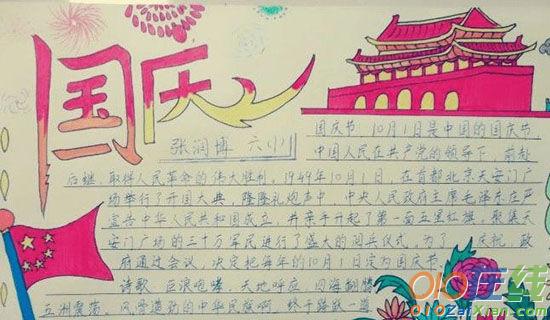 国庆
张润博 六(1)
国庆节 10月1日是中国的国庆节,
中国人民在共产党的领导下,前赴
后继,取得人民革命的伟大胜利,1949年10月1日,在首都北京天安门广
场举行了开国大典,隆隆礼炮声中,中央人民政府主席毛泽东庄严
宣告中华人民共和国成立,并亲手升起了第一面五星红旗,聚集天
安门广场的三十万军民进行了盛大的阅兵仪式,为了 庆祝,政
府通过会议,决定把每年的10月1日定为国庆节.
诗歌 巨浪咆哮,天地呼应 四海翻腾
五洲震荡,风雷激励的中华民族啊 终于踏踩一道
在线
ZaiXian.com